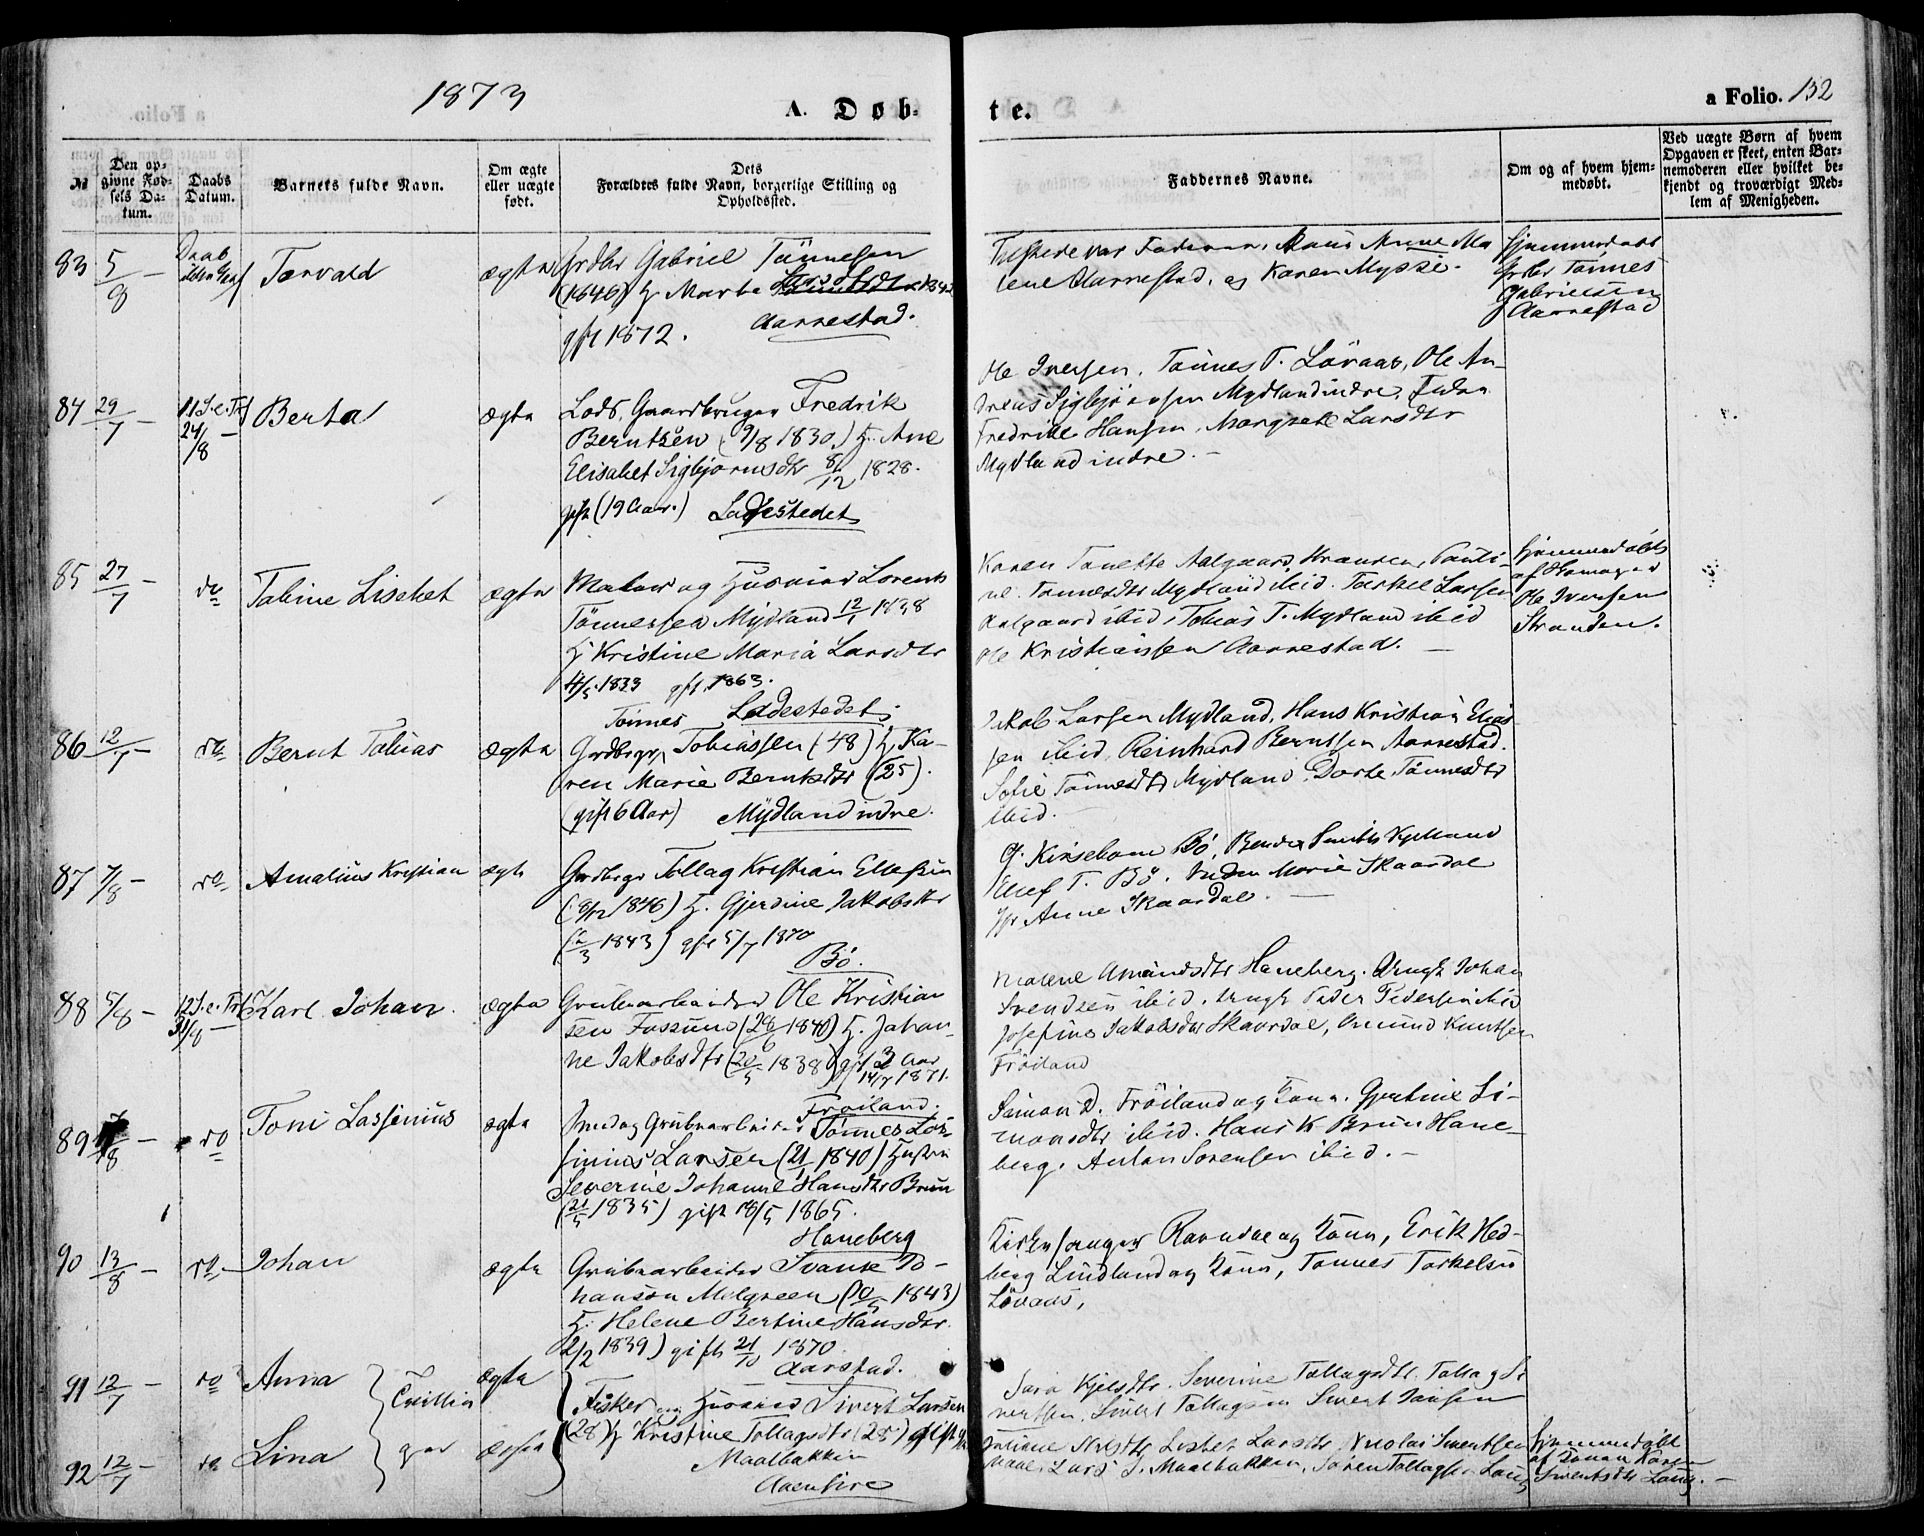 1873
A. Døb-
te.
a Folio. 132
№
Den op-
givne Fød-
sels Da-
tum.
Daabs
Datum.
Barnets fulde Navn.
Om ægte
eller uægte
født.
Dets
Forældres fulde Navn, borgerlige Stilling og
Opholdssted.
Faddernes Navne.
Om og af hvem hjem-
medøbt.
Ved uægte Børn af hvem
Opgaven er skeet, enten Bar-
nemoderen eller hvilket be-
kjendt og troværdigt Med-
lem af Menigheden.
83 5/8 - Daab Torvald ægte Grdbr Gabriel Tønnesen
(1846) H. Marta 1842
Aarrestad.
gft 1872.
Maus Anne Ma
lene Aarrestad, og Karen Mysse.
Hjemmedøbt
Grdbr Tønnes
Gabrielsen
Aarrestad
84 29/7 - 11 S. e. Tr 24/8 - Berta ægte Lods, Gaardbruger Fredrik
Berntsen (9/8 1830) H. Ane
Elisabet Sigbjørnsdtr 8/12 1828.
gift (19 Aar.) Ladestedet
Ole Iversen, Tønnes T. Løvaas, Ole An-
dreas Sigbjørnsen Mydland indre,
Fredrikke Hansen, Margrete Larsdtr
Mydland indre. -
85 27/7 - do Tobine Lisebet ægte Maler og Husmand Lorents
Tønnesen Mydland 12/1 1838
H Kristine Maria Larsdtr
4/5 1833 gft. 1863.
Ladestedet.
Karen Tonette Aalgaard Stranden,
Tønnesdtr Mydland ibid. Torkel Larsen
Aalgaard ibid, Tobias T. Mydland ibid
Ole Kristiansen Aarrestad. -
Hjemmedøbt
af
Ole Iversen
Stranden.
86 12/7 - do Bernt Tobias ægte Tønnes
Grdbrgr Tobiassen (48) H. Ka-
ren Marie Berntsdtr (25).
(gift 6 Aar) Mydland indre.
Jakob Larsen Mydland, Hans Kristian Elias
sen ibid, Reinhard Berntsen Aarrestad.
Sofie Tønnesdtr Mydland, Dorte Tønnesdtr
ibid.
87 7/8 - do Amalius Kristian ægte Grdbrgr Tollag Kristian Ellefsen
(8/12 1846) H. Gjerdine Jakobsdtr
1843) gft 5/7 1870
Bø.
G. Kirsebom Bø,
Ellef T. Bø. Marie Skaardal
Anne Skaardal. -
88 5/8 - 12 S. e. Tr 31/8 - Karl Johan. ægte Grubearbeider Ole Kristian
sen Fossum (28/6 1840) H. Johan-
ne Jakobsdtr (20/5 1838) gift 3 Aar
14/7 1871.
Frøiland.
Malene Amundsdtr Haneberg. Ungk Johan
Svendsen ibid. Ungk Peder Pedersen ibid
Josefine Jakobsdtr Skaardal, Omund Knutsen
Frøiland
89 /8 - do Toni Lassenius ægte Grubearbeider Tønnes Las-
sinius Larsen (21/1 1840) Hustru
Severine Johanne Hansdtr Brun
(21/5 1835) gift 18/5 1865.
Haneberg
Simon D. Frøiland og Kone. Gjertine Si-
monsdtr ibid. Hans K Brun Hane-
berg. Anton Sørensen ibid. -
90 13/8 - do - Johan ægte Grubearbeider Svante Jo-
hanson Melgreen (10/5 1843)
H. Helene Bertine Hansdtr.
2/2 1839) gift 21/10 1870
Aarstad.
Kirkesanger Ravndal og Kone, Erik Hed-
berg Lindland og Kone, Tønnes Torkelsen
Løvaas,
91 12/7 - do Anna ægte
Tvillin
ger
Fisker og Husmand Sivert Larsen
(28) H Kristine Tollagsdtr (28) gift
Maalbakken
Aaensire
Sara Kjelsdtr. Severine Tollagsdtr. Tollag Si
vertsen, Sivert Tollagsen Sivert Jansen
92 12/7 - do Lina ægte
Juliane Nilsdtr Lisbet Larsdtr, Nicolai Sivertsen
Lars S. Maalbakken, Søren Tollagsen Laug
Hjemmedøbt
af Konen Karen
Sivertsdtr Laug. -